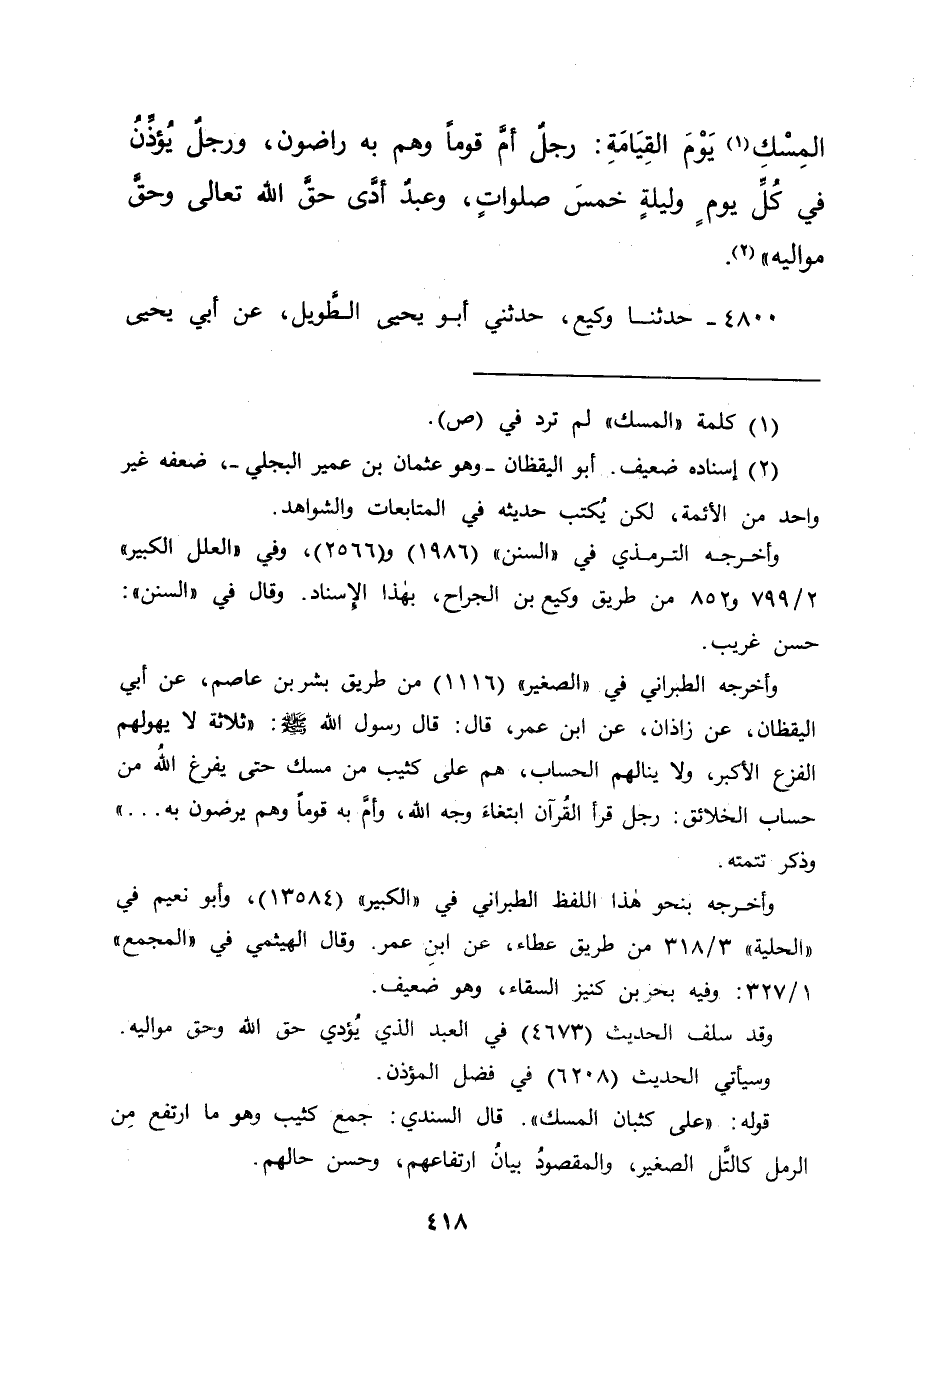 المِسْكِ(١) يَوْمَ القِيَامَةِ: رجلٌ أمَّ قوماً وهم به راضون، ورجلٌ يُؤذِّنُ
في كُلِّ يومٍ وليلةٍ خمسَ صلواتٍ، وعبدٌ أدَّى حقَّ الله تعالى وحقَّ
مواليه»(٢).
٤٨٠٠ ـ حدثنا وكيع، حدثني أبو يحيى الطَّويل، عن أبي يحيى
(١) كلمة «المسك» لم ترد في (ص).
(٢) إسناده ضعيف. أبو اليقظان ـ وهو عثمان بن عمير البجلي ـ، ضعفه غير
واحد من الأئمة، لكن يُكتب حديثه في المتابعات والشواهد.
وأخرجه الترمذي في «السنن» (١٩٨٦) و(٢٥٦٦)، وفي «العلل الكبير»
٧٩٩/٢ و٨٥٢ من طريق وكيع بن الجراح، بهٰذا الإسناد. وقال في «السنن»:
حسن غريب.
وأخرجه الطبراني في «الصغير» (١١١٦) من طريق بشر بن عاصم، عن أبي
اليقظان، عن زاذان، عن ابن عمر، قال: قال رسول الله ﷺ: «ثلاثة لا يهولهم
الفزع الأكبر، ولا ينالهم الحساب، هم على كثيب من مسك حتى يفرغ اللهُ من
حساب الخلائق: رجل قرأ القُرآن ابتغاءَ وجه الله، وأمَّ به قوماً وهم يرضون به...»
وذكر تتمته.
وأخرجه بنحو هٰذا اللفظ الطبراني في «الكبير» (١٣٥٨٤)، وأبو نعيم في
«الحلية» ٣١٨/٣ من طريق عطاء، عن ابنِ عمر. وقال الهيثمي في «المجمع»
٣٢٧/١: وفيه بحر بن كنيز السقاء، وهو ضعيف.
وقد سلف الحديث (٤٦٧٣) في العبد الذي يُؤدي حق الله وحق مواليه.
وسيأتي الحديث (٦٢٠٨) في فضل المؤذن.
قوله: «على كثبان المسك». قال السندي: جمع كثيب وهو ما ارتفع مِن
الرمل كالتَّل الصغير، والمقصودُ بيانُ ارتفاعهم، وحسن حالهم.
٤١٨